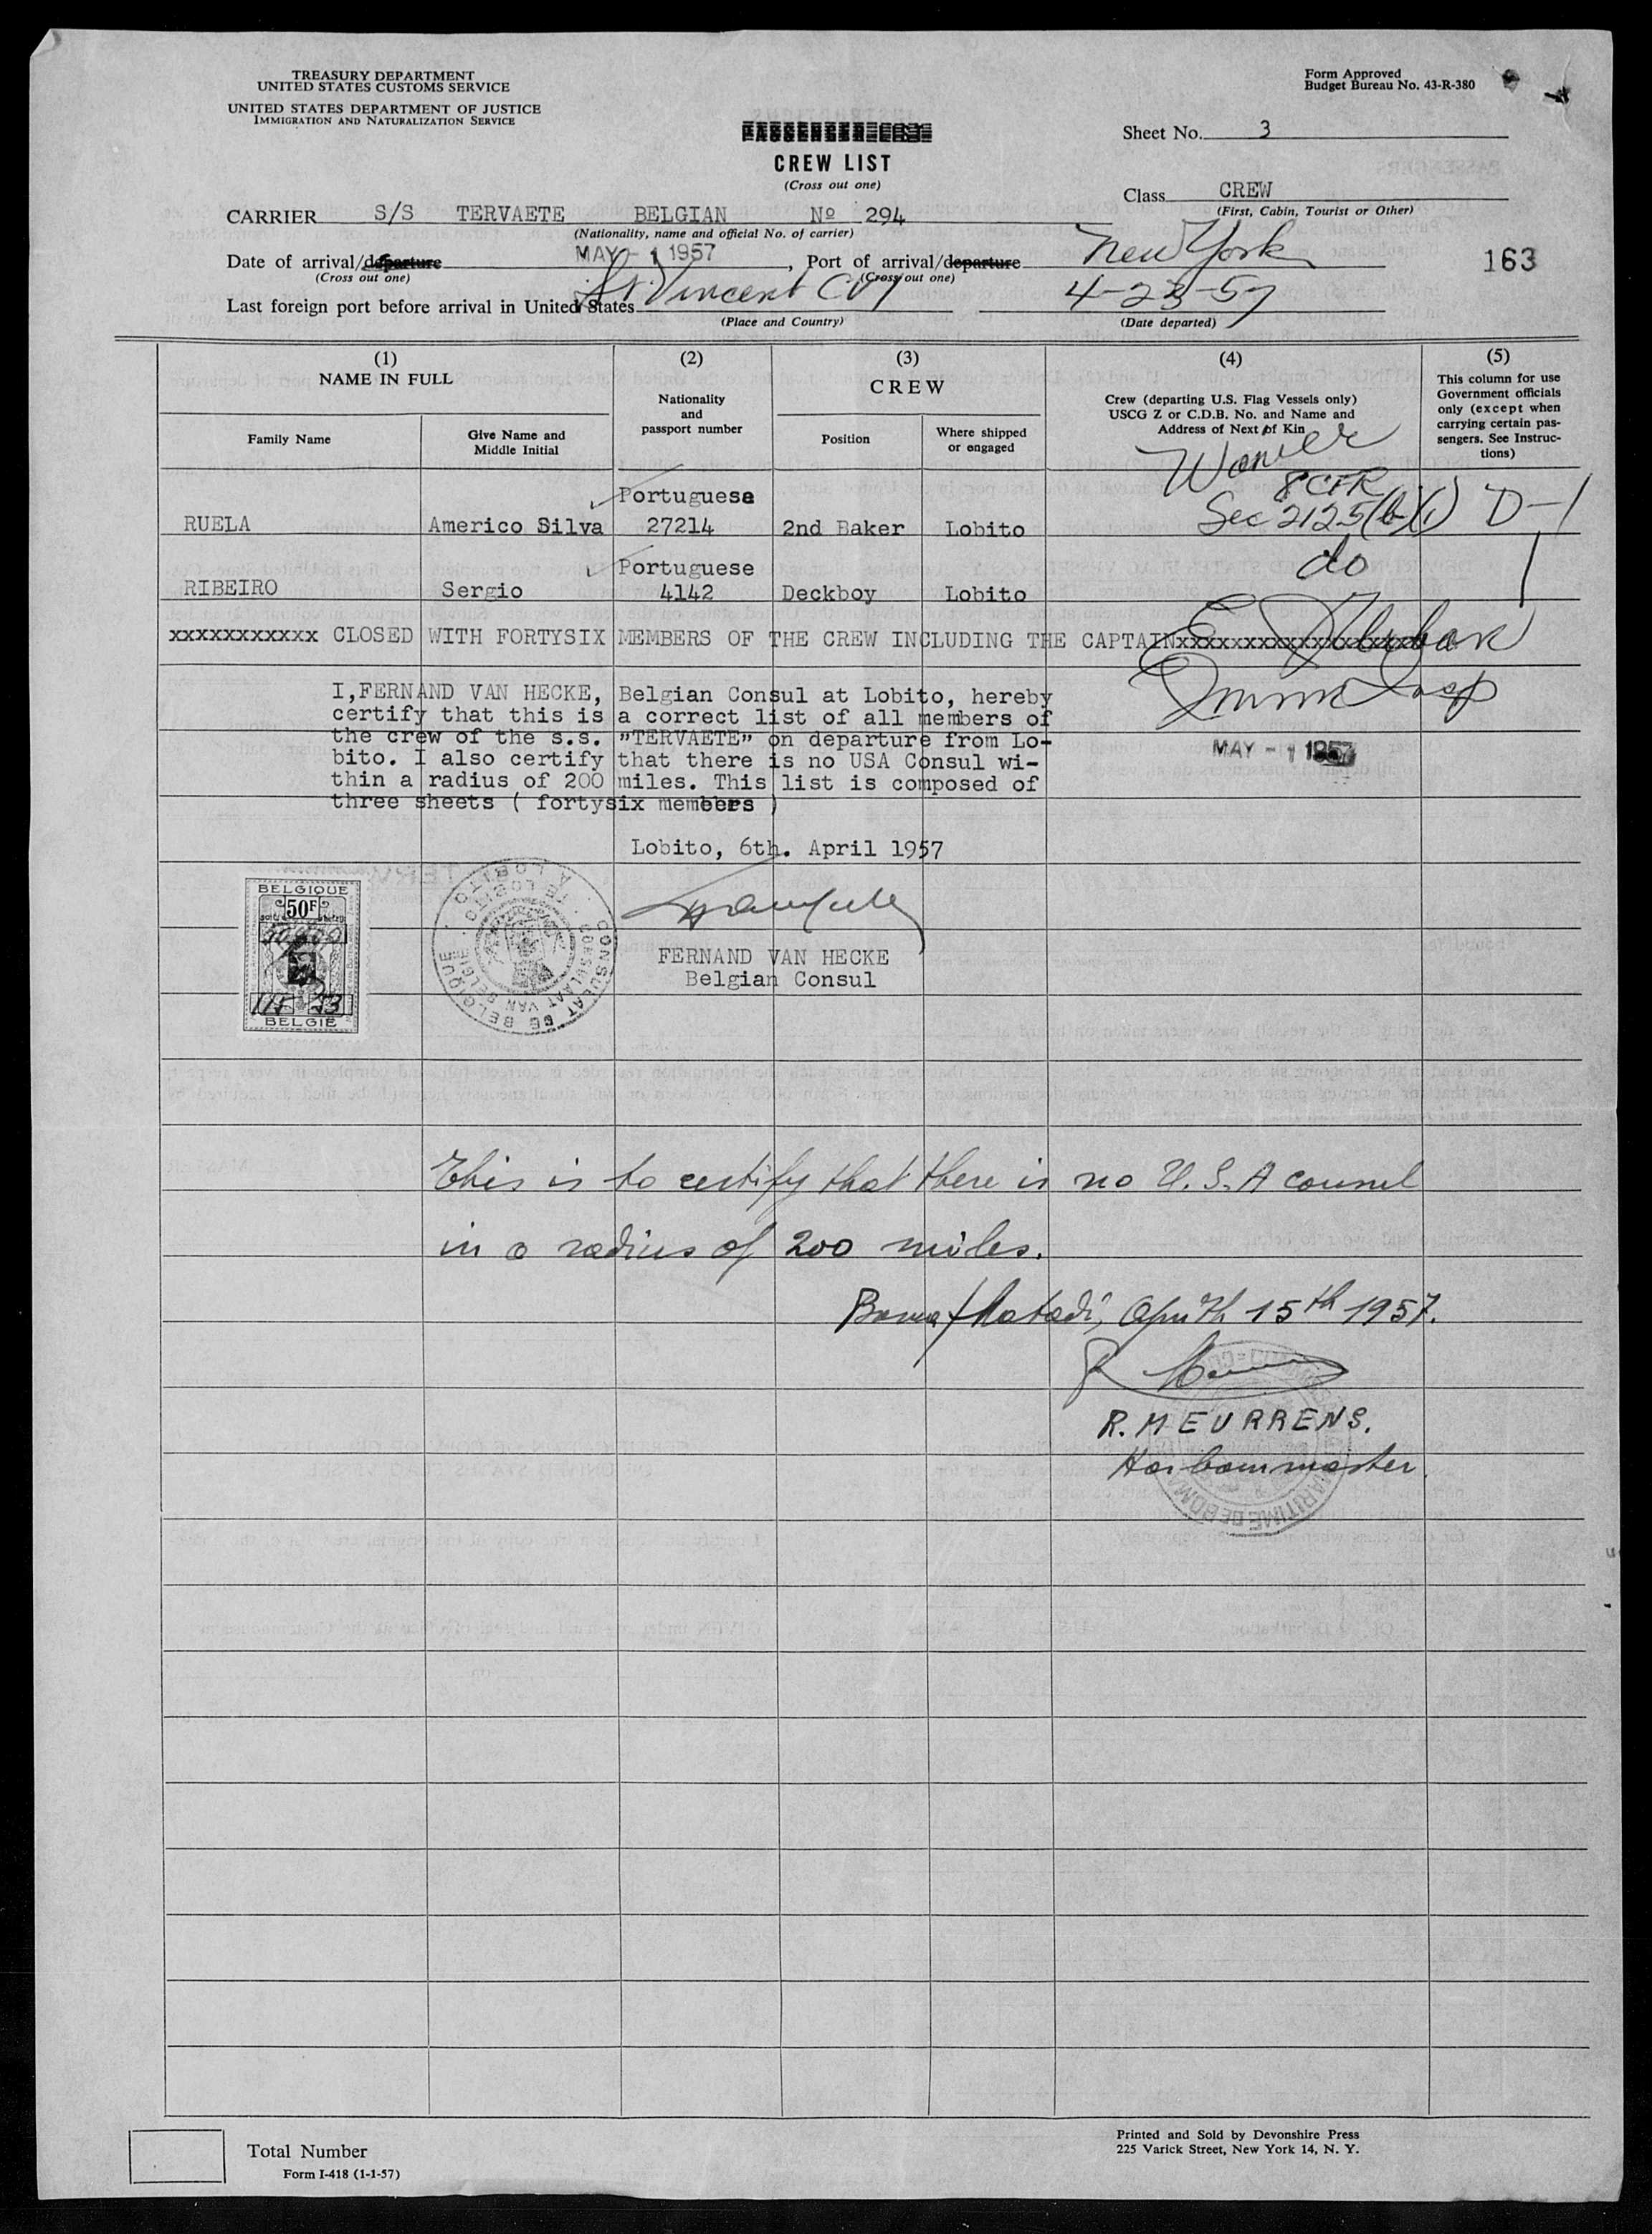 TREASURY DEPARTMENT
UNITED STATES CUSTOMS SERVICE
UNITED STATES DEPARTMENT OF JUSTICE
IMMIGRATION AND NATURALIZATION SERVICE
Form Approved
Budget Bureau No. 43-R-380
PASSENGER LIST
CREW LIST
(Cross out one)
Sheet No. 3
Class CREW
(First, Cabin, Tourist or Other)
CARRIER S/S TERVAETE BELGIAN Nº 294
(Nationality, name and official No. of carrier)
Date of arrival/departure MAY - 1 1957, Port of arrival/departure New York
(Cross out one) (Cross out one)
163
Last foreign port before arrival in United States St Vincent CVI 4-23-57
(Place and Country) (Date departed)
(1) (2) (3) (4) (5)
NAME IN FULL
Nationality
and
passport number
CREW
Crew (departing U.S. Flag Vessels only)
USCG Z or C.D.B. No. and Name and
Address of Next of Kin
This column for use
Government officials
only (except when
carrying certain pas-
sengers. See Instruc-
tions)
Family Name
Give Name and
Middle Initial
Position
Where shipped
or engaged
Waiver
8 CFR
Portuguese
RUELA Americo Silva 27214 2nd Baker Lobito Sec 212.5(b)(1) D-1
Portuguese do
RIBEIRO Sergio 4142 Deckboy Lobito
xxxxxxxxxxx CLOSED WITH FORTYSIX MEMBERS OF THE CREW INCLUDING THE CAPTAINxxxxxxxxxxxxxxxxxx
Imm Insp
MAY - 1 1957
I,FERNAND VAN HECKE, Belgian Consul at Lobito, hereby
certify that this is a correct list of all members of
the crew of the s.s. "TERVAETE" on departure from Lo-
bito. I also certify that there is no USA Consul wi-
thin a radius of 200 miles. This list is composed of
three sheets ( fortysix members )
Lobito, 6th. April 1957
BELGIQUE
50F
BELGIË
CONSULAT DE BELGIQUE A LOBITO
CONSULAAT VAN BELGIE TE LOBITO
FERNAND VAN HECKE
Belgian Consul
This is to certify that there is no U.S.A consul
in a radius of 200 miles.
Boma/Matadi, April 15th 1957.
R. MEURRENS.
Harbourmaster.
MARITIME DE BOMA
Total Number
Form I-418 (1-1-57)
Printed and Sold by Devonshire Press
225 Varick Street, New York 14, N. Y.